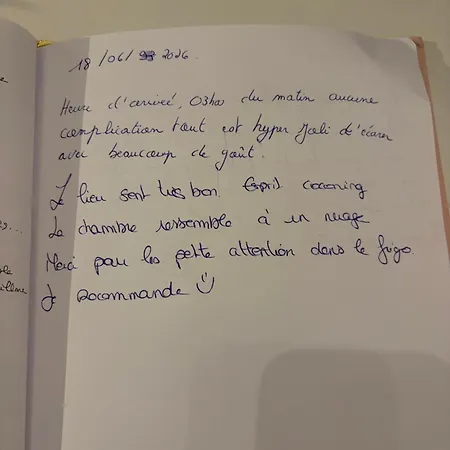 18/06/ 2026.
Heure d'arrivée, 03h00 du matin aucune
complication tout est hyper Joli décorer
avec beaucoup de goût.
Le lieu sent très bon. Esprit cocooning
La chambre ressemble à un nuage
Merci pour les petite attention dans le frigo
Je Recommande ☺